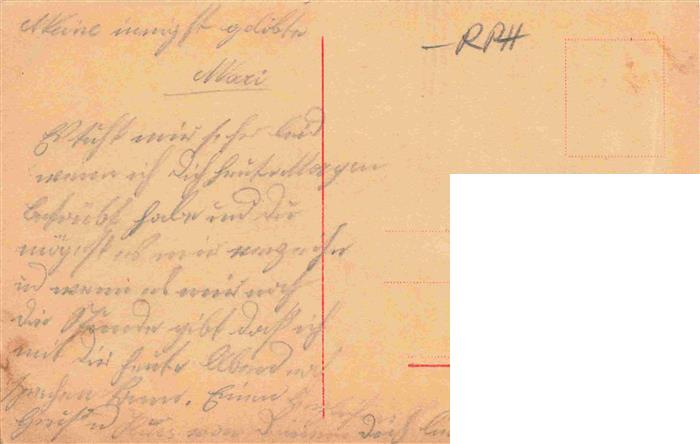 Meine innigst geliebte
Maxi
—RPH
Es tuht mir sehr leid
wenn ich Dich heute Morgen
betrübt habe und Du
mögest es mir vergeben
u wenn es mir noch
die Stunde gibt daß ich
mit Dir heute Abend noch
sprechen kann. Einen
Gruß u Kuss von Deinem Dich